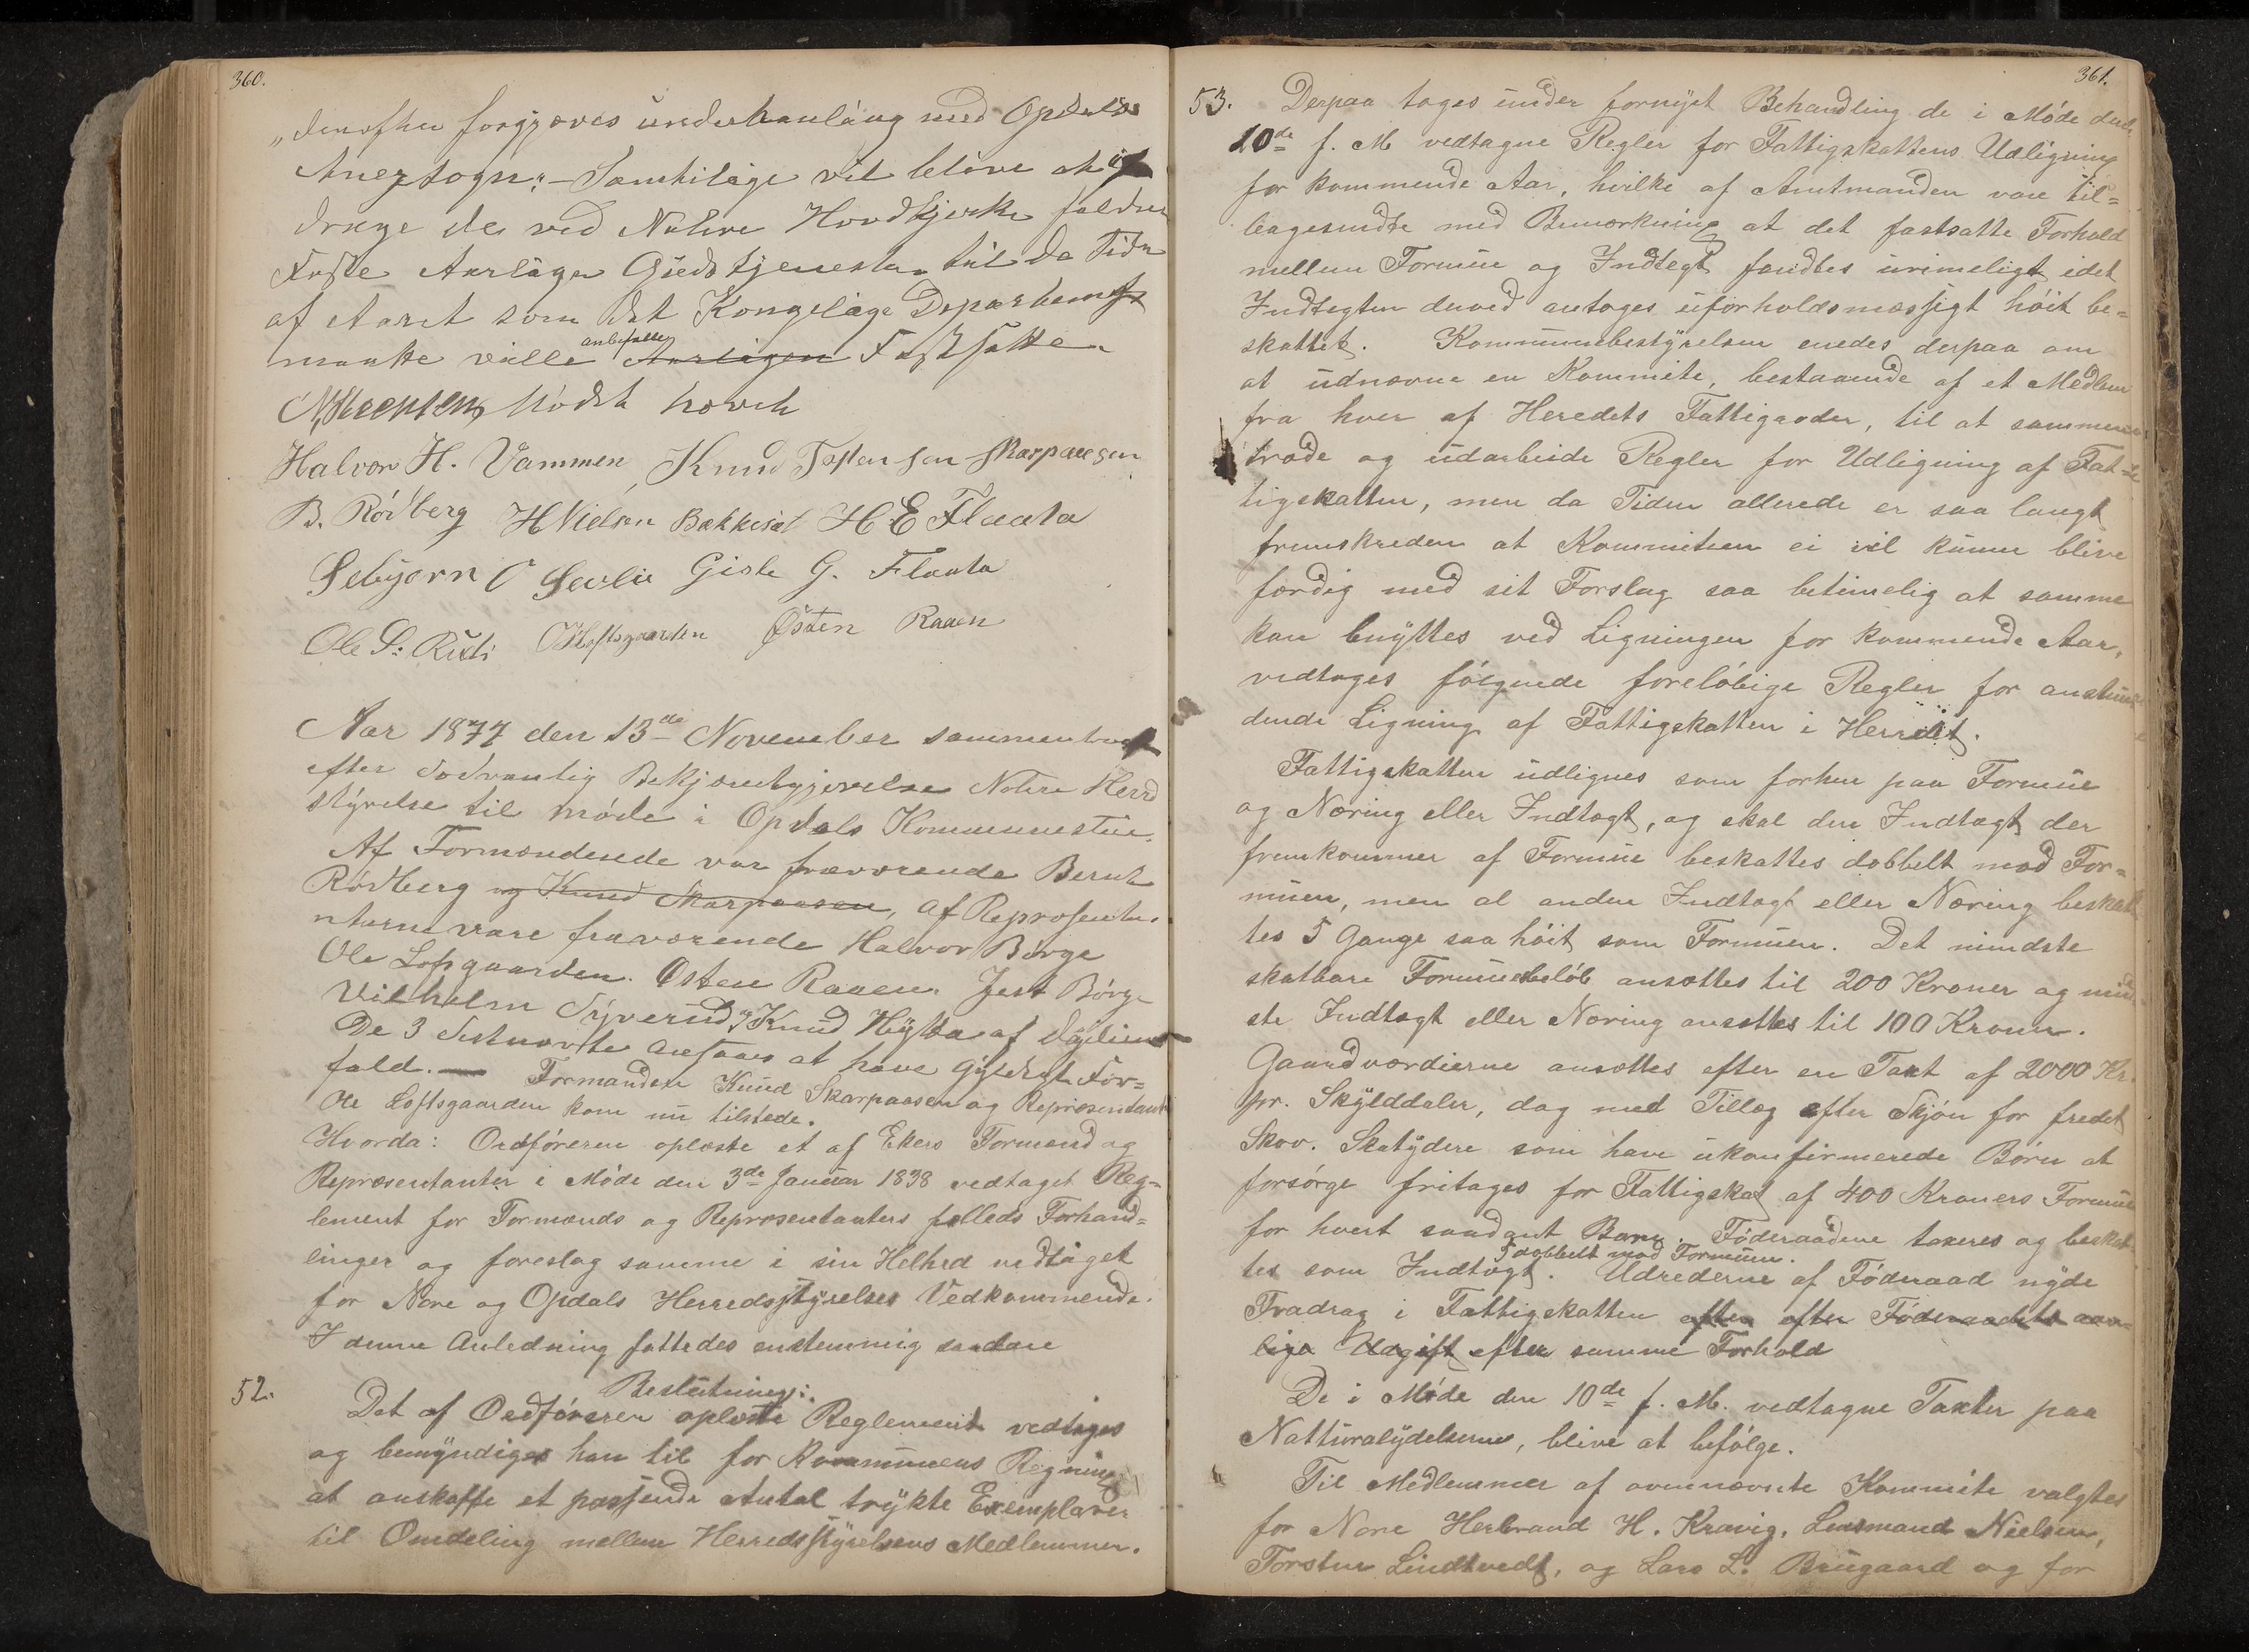 360.
„denefter forgjæves underhanláng med Opdals
Anexsogn; – Samtilige vil blive at
drage de ved Nohre Hovdkjerke
faste Aarlige Gudstjenester til de Tider
af Aaret som det Kongelige Departement
maatte ville anbefalle Aarligen Fastsætte.
Halvor H. Vammen, Knud Tostensen Skarpaasen
B. Rödberg H Nielsen Bakkesæt H E Flaata
Sebjørn Sevlie Giste G. Flaata
Ole S. Rudi O Loftsgaarden Østen Raaen
Aar 1877 den 13de November sammentraadte
efter Sedvanlig Bekjendtgjørelse Nohre Herred
styrelse til møde i Opdals Kommunestue.
Af Formændesede var fraværende Bernt
Rödberg og Knud Skarpaasen, af Repræsenta-
nterne vare fraværende Halvor Berge
Ole Lofsgaarden. Østen Raaen. Jest Börge
Vilhelm Syverud og Knud Hÿtta af
De 3 Sistnævnte ansaaes at have Gyldigt For=
fald. — Formanden Knud Skarpaasen og Repræsentant
Ole Loftsgaarden kom nu tilstede.
Hvorda: Ordföreren oplæste et af Ekers Formænd og
Repræsentanter i Möde den 3de Januar 1838 vedtaget Reg=
lement for Formænds og Repræsentanters fælleds Forhand=
linger og foreslog samme i sin Helhed vedtaget
for Nore og Opdals Herredsstyrelses Vedkommende.
I denne Anledning fattedes enstemmig saadan
Beslutning:
52. Det af Ordföreren oplæste Reglement vedtages
og bemyndiges han til for Kommunens Regning
at anskaffe et passende Antal trykte Exemplarer
til Omdeling mellem Herredsstyrelsens Medlemmer.
361.
53. Derpaa toges under fornyet Behandling de i Möde den
10de f. M vedtagne Regler for Fattigskattens Udligning
for kommende Aar, hvilke af Amtmanden vare til=
bagesendte med Bemærkning at det fastsatte Forhold
mellem Formue og Indtægt fandtes urimeligt idet
Indtægten derved antoges uforholdsmæssigt höit be=
skattet. Kommunebestyrelsen enedes derpaa om
at udnævne en Kommite, bestaaende af et Medlem
fra hver af Heredets Fattigroder, til at sammen
træde og udarbeide Regler for Udligning af Fat=
tigskatten, men da Tiden allerede er saa langt
fremskreden at Kommiteen ei vil kunne blive
færdig med sit Forslag saa betimelig at samme
kan benyttes ved Ligningen for kommende Aar,
vedtoges fölgende forelöbige Regler for anstun
dende Ligning af Fattigskatten i Herredet.
Fattigskatten udlignes som forhen paa Formue
og Næring eller Indtægt, og skal den Indtægt der
fremkommer af Formue beskattes dobbelt mod For=
muen, men al anden Indtægt eller Næring beskat
tes 5 Gange saa höit som Formuen. Det mindste
skatbare Formuesbelöb ansættes til 200 Kroner og mind
ste Indtægt eller Næring ansættes til 100 Kroner.
Gaardværdierne ansættes efter en Taxt af 2000 Kr.
pr. Skylddaler, dog med Tillæg efter Skjön for fredet
Skov. Skatydere som have ukonfirmerede Börn at
forsörge fritages for Fattigskat af 400 Kroners Formue
for hvert saadant Barn. Föderaadene taxeres og beskat
tes som Indtægt 5 dobbelt mod Formuen. Udrederne af Föderaad nyde
Fradrag i Fattigskatten efter efter Föderaadets aar=
lige Udgift efter samme Forhold
De i Möde den 10de f. M. vedtagne Taxter paa
Natturalydelserne, blive at befölge.
Til Medlemmer af ovennævnte Kommite valgtes
for Nore Herbrand H. Kravig, Lensmand Nielsen,
Torsten Lindtvedt, og Lars L. Brugaard og for